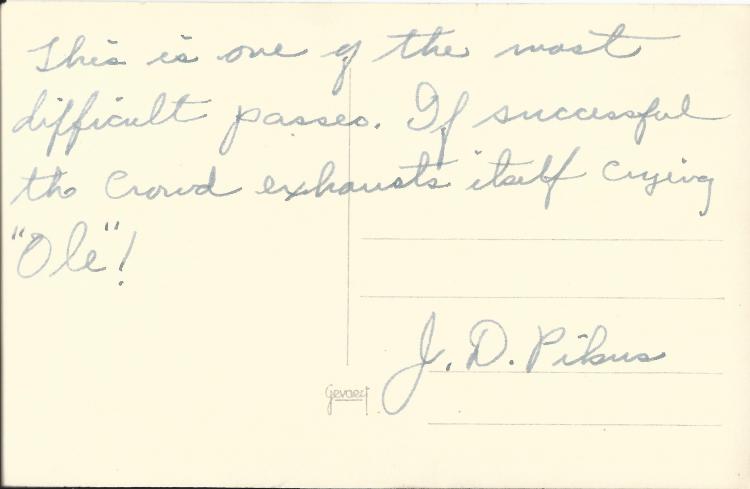 This is one of the most
difficult passes. If successful
the crowd exhausts itself crying
"Ole"!
J. D. Pikus
Gevaert